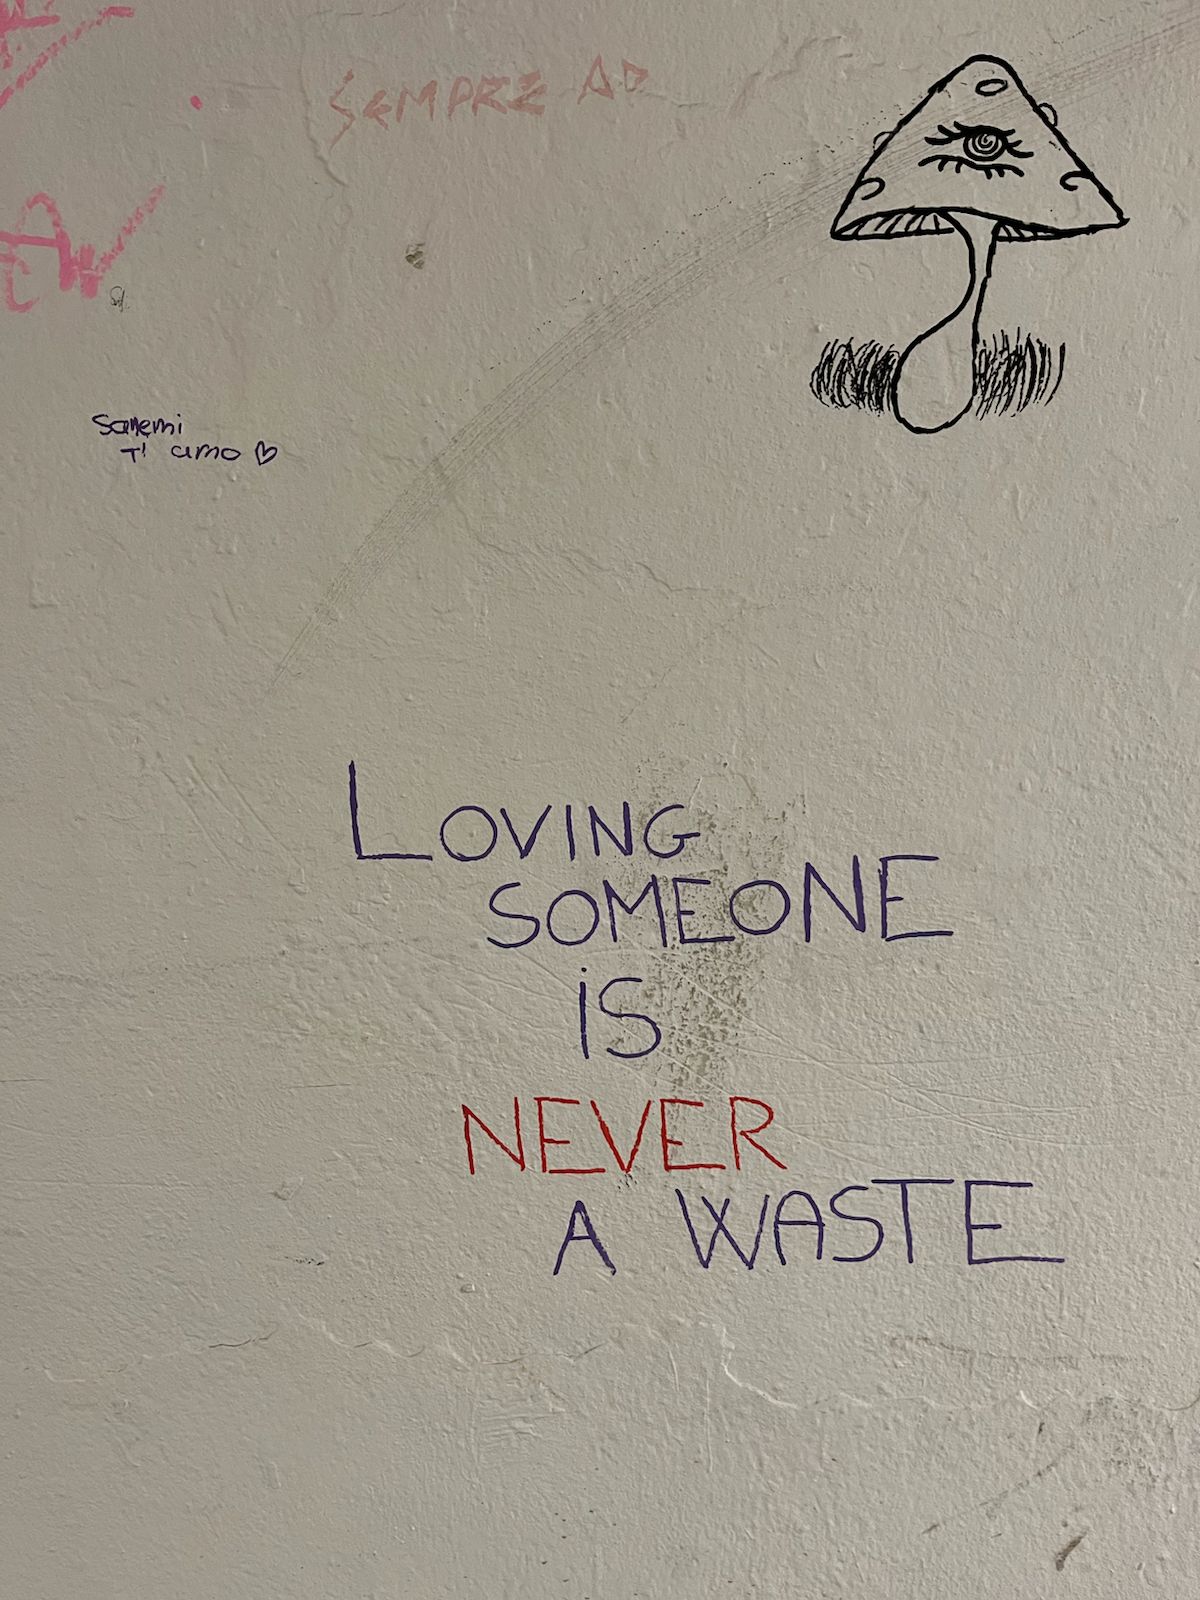 SEMPRE AD
Sanemi
Ti amo ♡
LOVING
SOMEONE
iS
NEVER
A WASTE